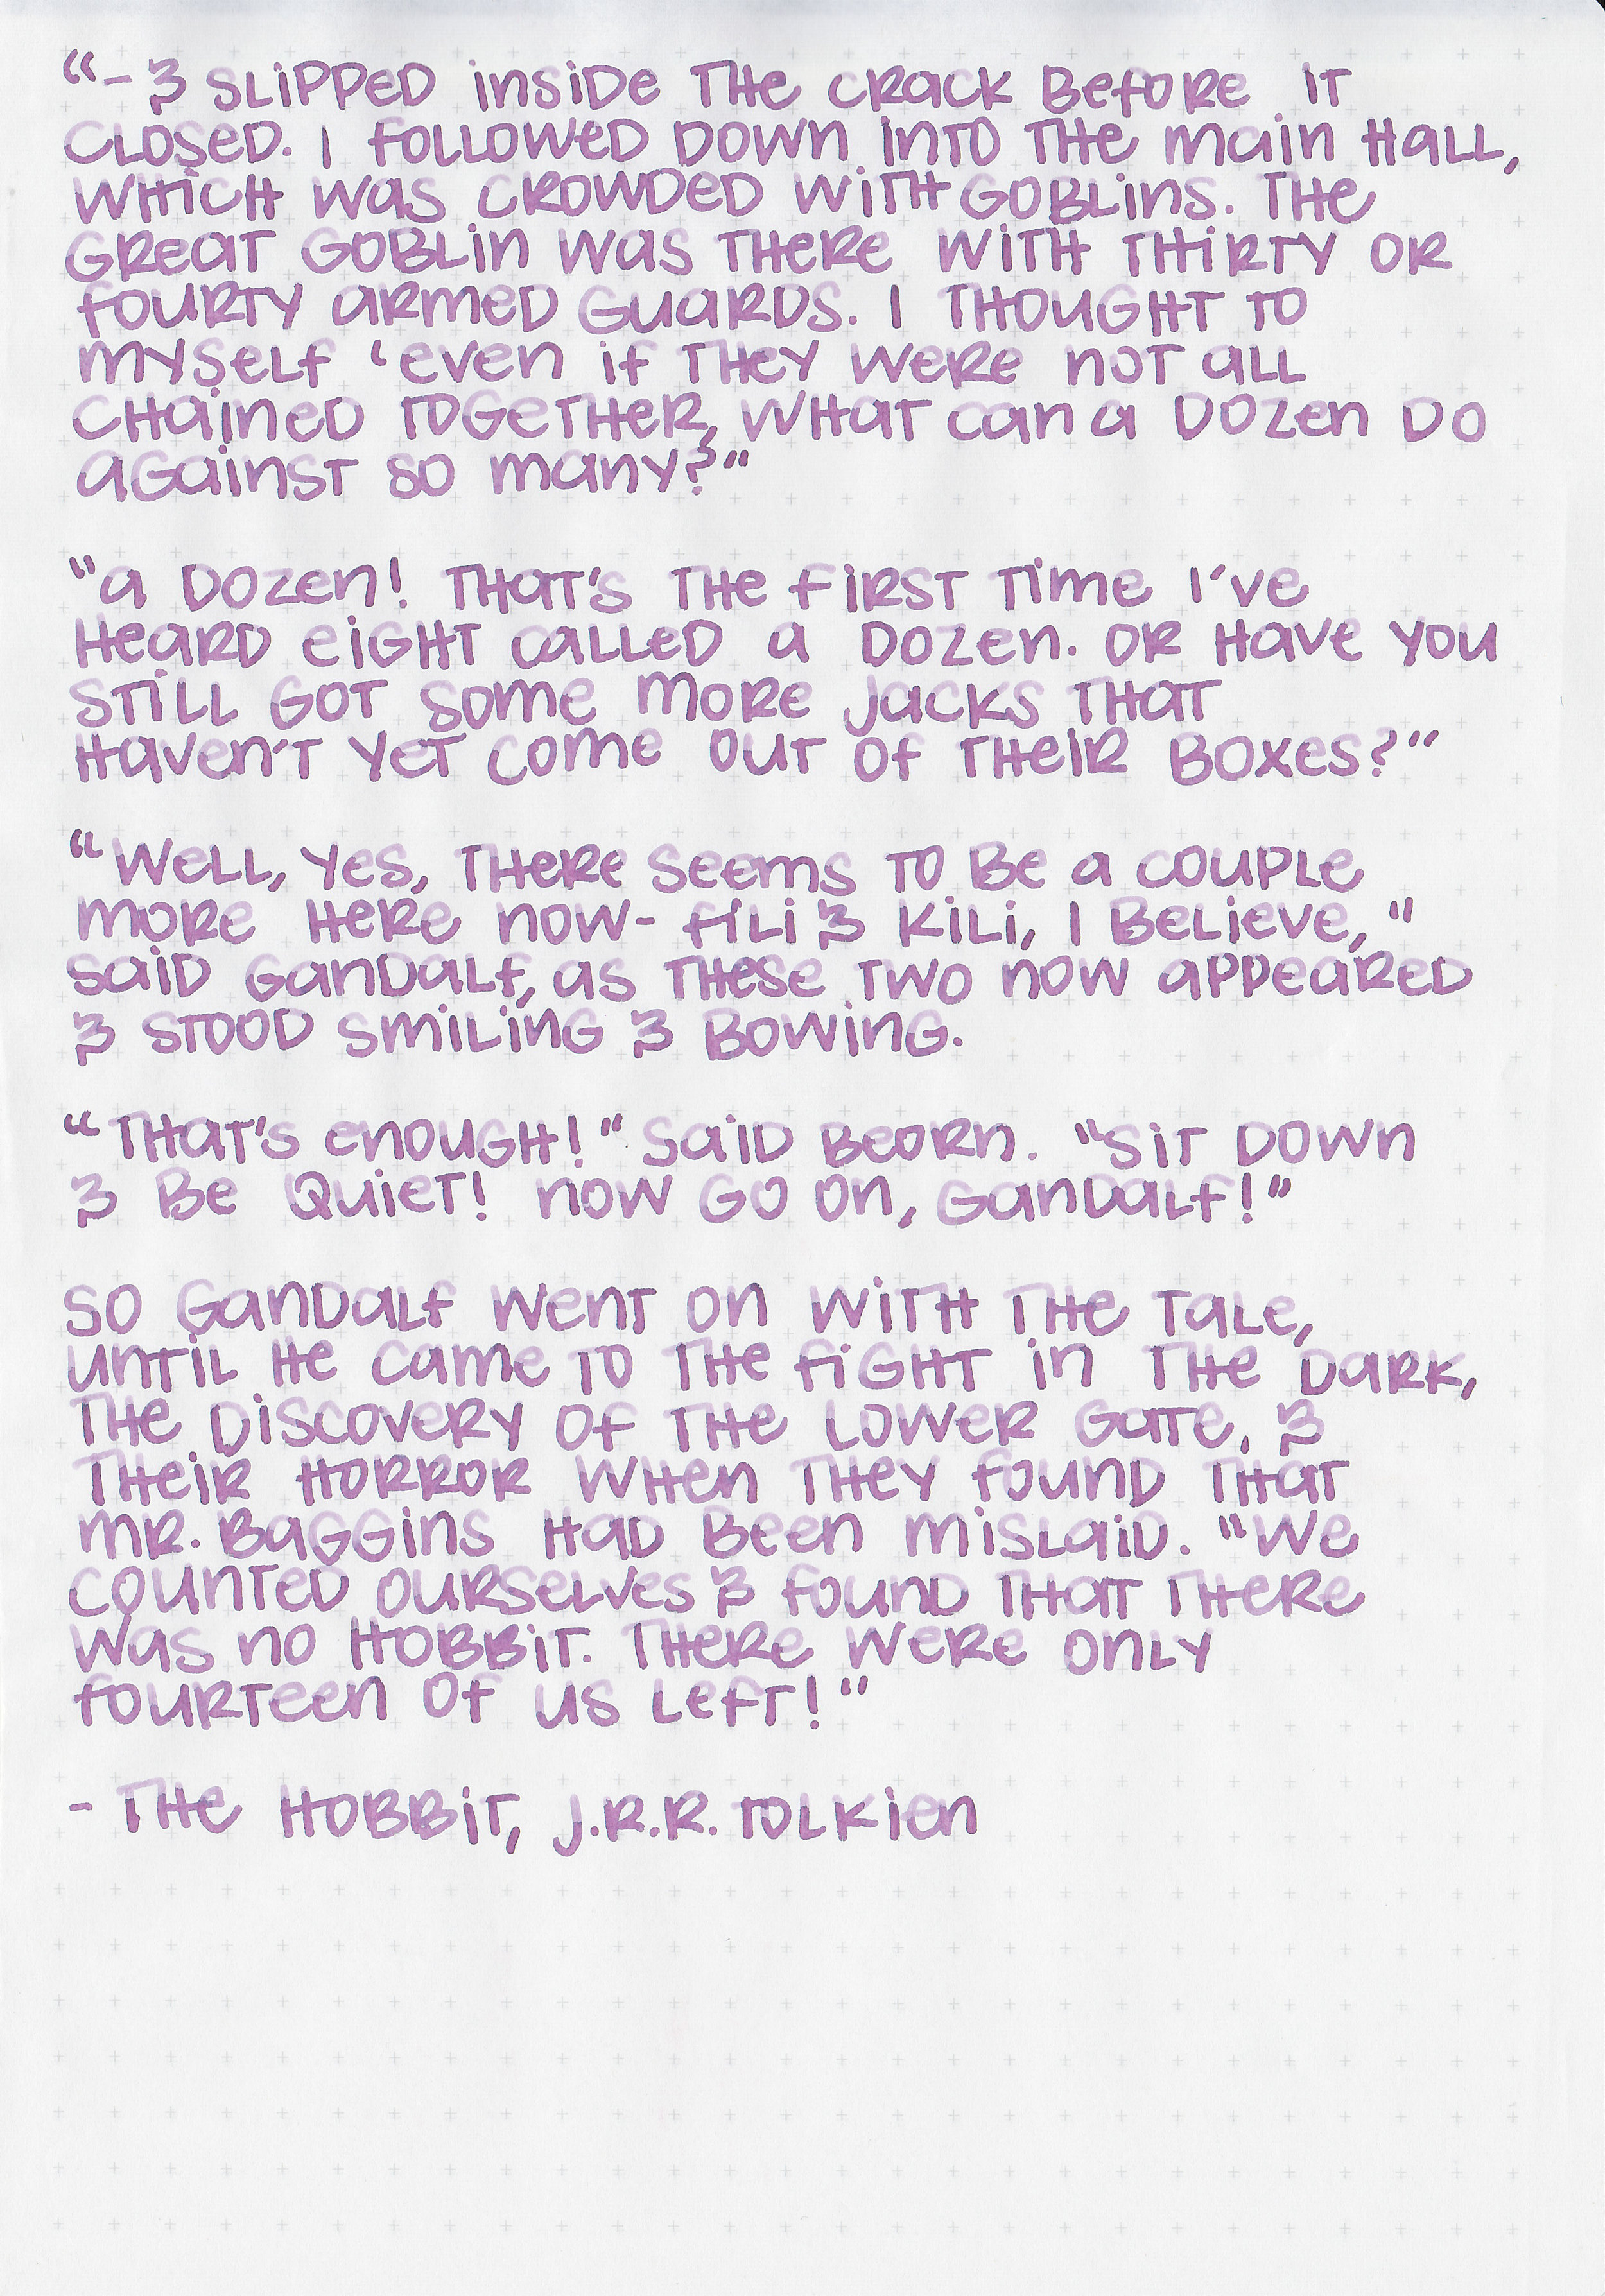 "- & slipped inside the crack before it
closed. I followed down into the main hall,
which was crowded with goblins. The
Great Goblin was there with thirty or
fourty armed guards. I thought to
myself 'even if they were not all
chained together, what can a dozen do
against so many?"
"A dozen! That's the first time I've
heard eight called a dozen. Or have you
still got some more jacks that
haven't yet come out of their boxes?"
"Well, yes, there seems to be a couple
more here now- Fili & Kili, I believe,"
said Gandalf, as these two now appeared
& stood smiling & bowing.
"That's enough!" said Beorn. "Sit down
& be quiet! Now go on, Gandalf!"
So Gandalf went on with the tale,
until he came to the fight in the dark,
the discovery of the lower gate, &
their horror when they found that
Mr. Baggins had been mislaid. "We
counted ourselves & found that there
was no hobbit. There were only
fourteen of us left!"
- The Hobbit, J.R.R. Tolkien